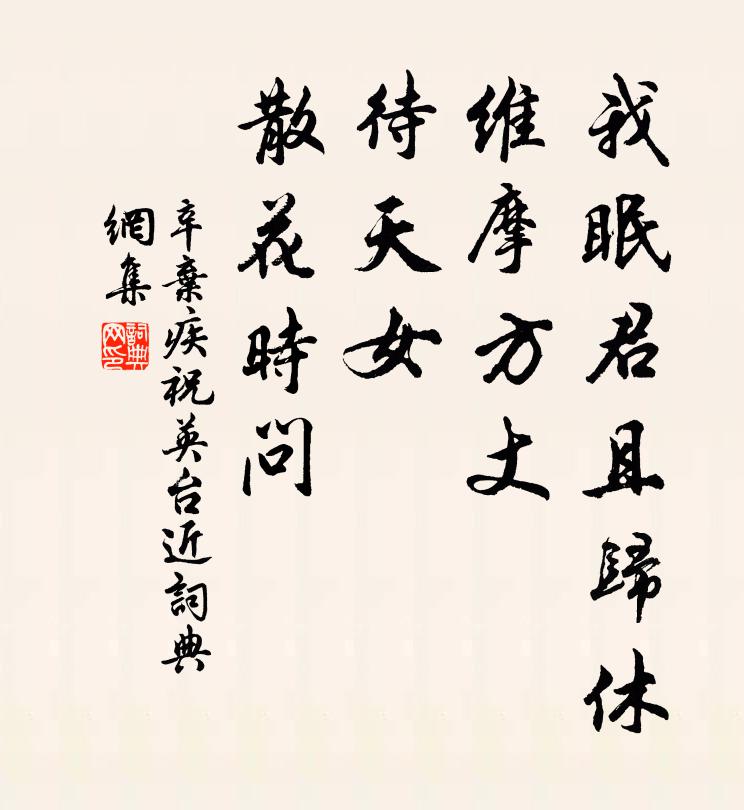 我眠君且歸休
維摩方丈
待天女
散花時問
辛棄疾祝英台近詞典
網集
詞典网印